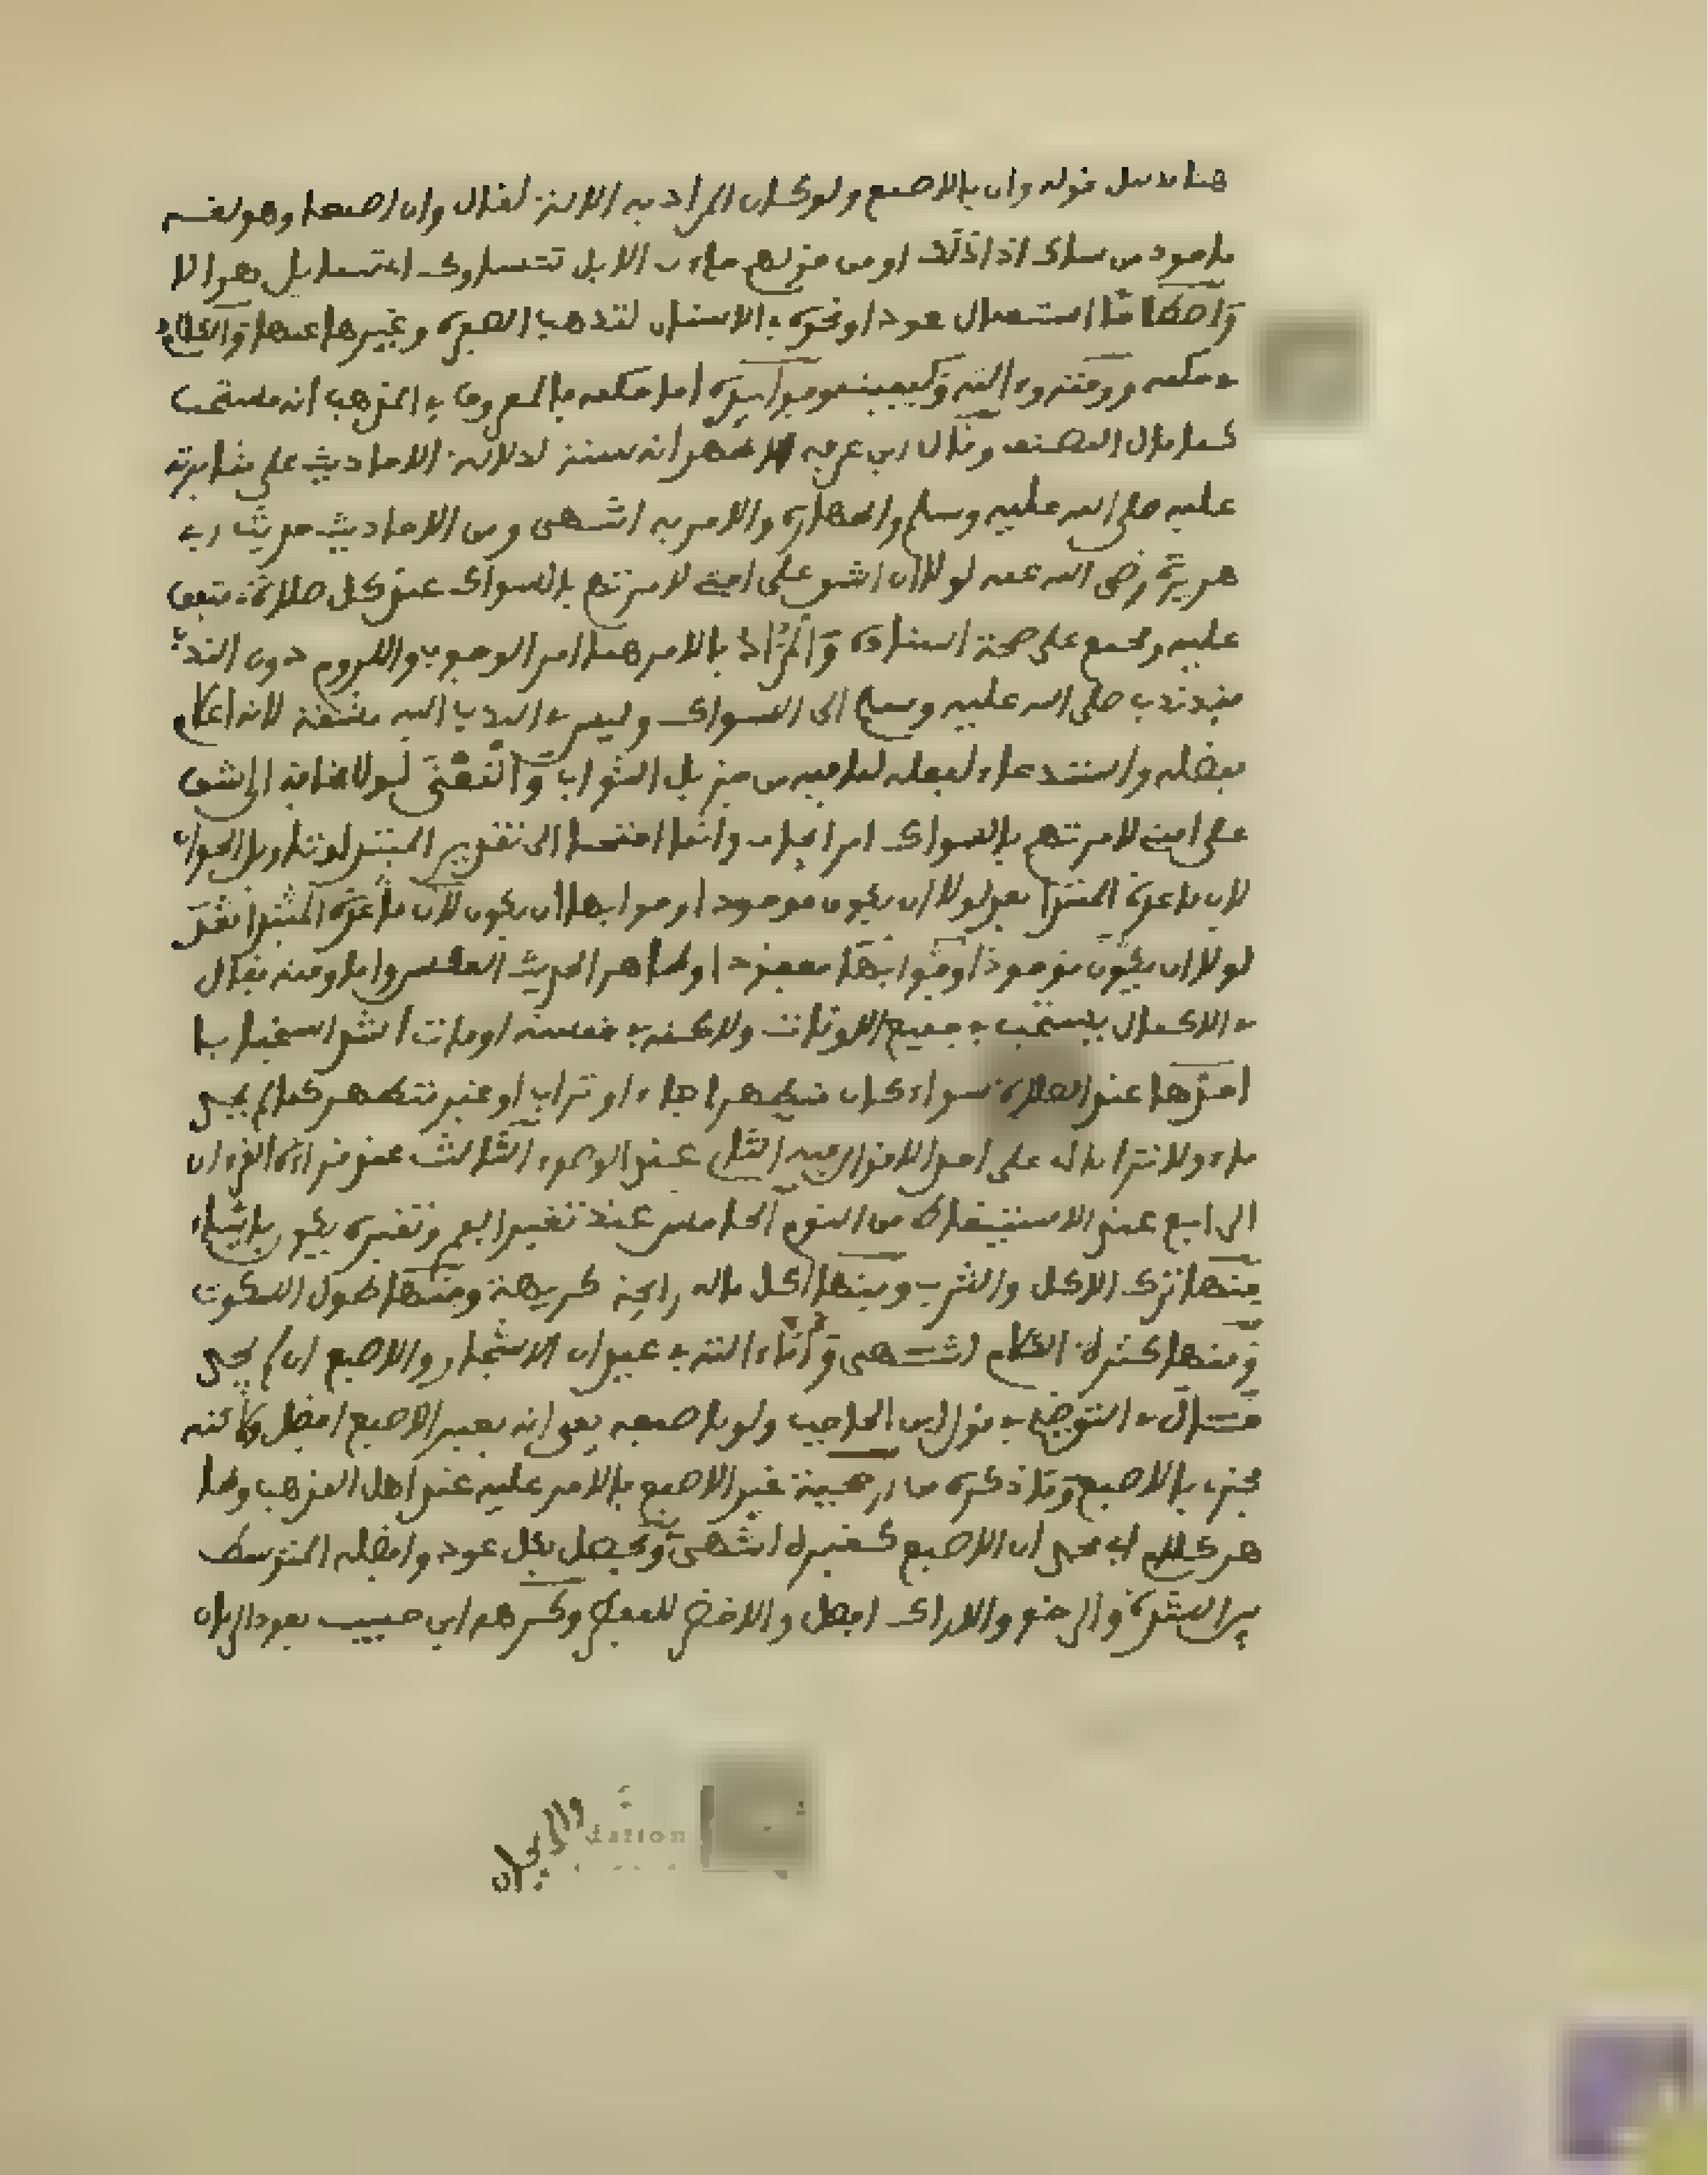 هنا بدليل قوله وان بالاصبع ولو كان المراد به الالة لقال وان اصبعا وهو لغة
ماخوذ من ساك اذا ذلك او من قولهم جاءت الابل تتساوك اي تتمايل هزالا
واصطلاحا استعمال عود او نحوه في الاسنان لتذهب الصفرة وغيرها عنها والكلام
في حكمه ووقته وءالته وكيفيته وفوائده اما حكمه فالمعروف في المذهب انه مستحب
كما قال المصنف وقال ابن عرفة الاظهر انه سنة لدلالة الاحاديث على مثابرته
عليه صلى الله عليه وسلم واظهاره والامر به انتهى ومن الاحاديث حديث ابي
هريرة رضي الله عنه لولا ان اشق على امتي لامرتهم بالسواك عند كل صلاة متفق
عليه ومجمع على صحة اسناده والمراد بالامر هنا امر الوجوب واللزوم دون الندب
فقد ندب صلى الله عليه وسلم الى السواك وليس في الندب اليه مشقة لانه اعلام
بفضله واستدعاء لفعله لما فيه من جزيل الثواب والمعنى لولا مخافة ان اشق
على امتي لامرتهم بالسواك امر ايجاب وانما احتجنا الى تقدير المبتدا وتاويل الجواب
لان قاعدة المبتدا بعد لولا ان يكون موجودا وجوابها ان يكون لان قاعدة المبتدا بعد
لولا ان يكون موجودا وجوابها مفقودا وظاهر الحديث العكس واما وقته فقال
في الاكمال يستحب في جميع الاوقات ولاكنه في خمسة اوقات اشد استحبابا
احدها عند الصلاة سواء كان متطهرا بماء او تراب او غير متطهر كمن لم يجد
ماء ولا ترابا له على احد الاقوال فيه الثاني عند الوضوء الثالث عند قراءة القرءان
الرابع عند الاستيقاظ من النوم الخامس عند تغير الفم وتغيره يكون باشياء
منها ترك الاكل والشرب ومنها اكل ماله رائحة كريهة ومنها طول السكوت
ومنها كثرة الكلام انتهى واما ءالته فعيدان الاشجار والاصبع ان لم يجد
قال في التوضيح في قول ابن الحاجب ولو باصبعه يعني انه بغير الاصبع افضل ولاكنه
يجزي بالاصبع وما ذكره من ارجحية غير الاصبع فالامر عليه عند اهل المذهب وظا
هر كلام ابي محمد ان الاصبع كغيره انتهى ويحصل بكل عود وافضله المتوسط
بين الشدة والرخو والاراك افضل والاخضر للمفطر وكرهه ابن حبيب بعود الرمان
والريحان